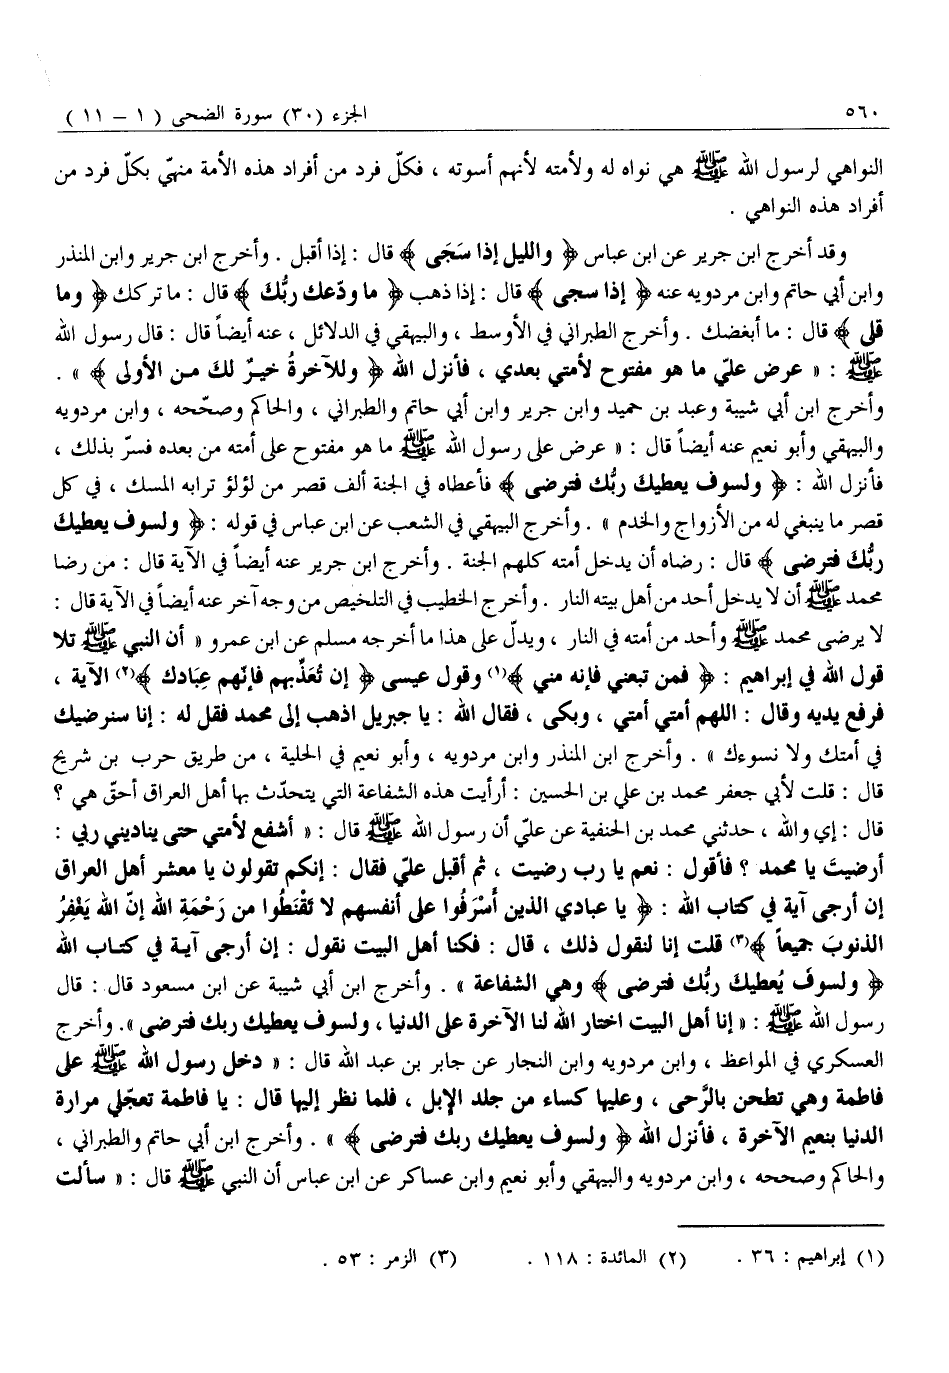 ٥٦٠ الجزء (٣٠) سورة الضحى ( ١ – ١١ )
النواهي لرسول الله ﷺ هي نواه له ولأمته لأنهم أسوته ، فكلّ فرد من أفراد هذه الأمة منهيّ بكلّ فرد من
أفراد هذه النواهي .
وقد أخرج ابن جرير عن ابن عباس ﴿ والليل إذا سَجَى ﴾ قال : إذا أقبل . وأخرج ابن جرير وابن المنذر
وابن أبي حاتم وابن مردويه عنه ﴿ إذا سجى ﴾ قال : إذا ذهب ﴿ ما ودّعك ربُّك ﴾ قال : ما تركك ﴿ وما
قلى ﴾ قال : ما أبغضك . وأخرج الطبراني في الأوسط ، والبيهقي في الدلائل ، عنه أيضاً قال : قال رسول الله
ﷺ : « عرض عليّ ما هو مفتوح لأمتي بعدي ، فأنزل الله ﴿ وللآخرةُ خيرٌ لكَ من الأولى ﴾ » .
وأخرج ابن أبي شيبة وعبد بن حميد وابن جرير وابن أبي حاتم والطبراني ، والحاكم وصحّحه ، وابن مردويه
والبيهقي وأبو نعيم عنه أيضاً قال : « عرض على رسول الله ﷺ ما هو مفتوح على أمته من بعده فسرّ بذلك ،
فأنزل الله : ﴿ ولسوف يعطيكَ ربُّك فترضى ﴾ فأعطاه في الجنة ألف قصر من لؤلؤ ترابه المسك ، في كل
قصر ما ينبغي له من الأزواج والخدم » . وأخرج البيهقي في الشعب عن ابن عباس في قوله : ﴿ ولسوف يعطيكَ
ربُّكَ فترضى ﴾ قال : رضاه أن يدخل أمته كلهم الجنة . وأخرج ابن جرير عنه أيضاً في الآية قال : من رضا
محمد ﷺ أن لا يدخل أحد من أهل بيته النار . وأخرج الخطيب في التلخيص من وجه آخر عنه أيضاً في الآية قال :
لا يرضى محمد ﷺ وأحد من أمته في النار ، ويدلّ على هذا ما أخرجه مسلم عن ابن عمرو « أن النبي ﷺ تلا
قول الله في إبراهيم : ﴿ فمن تبعني فإنه مني ﴾(١) وقول عيسى ﴿ إن تُعَذِّبهم فإنّهم عِبَادك ﴾(٢) الآية ،
فرفع يديه وقال : اللهم أمتي أمتي ، وبكى ، فقال الله : يا جبريل اذهب إلى محمد فقل له : إنا سنرضيك
في أمتك ولا نسوءك » . وأخرج ابن المنذر وابن مردويه ، وأبو نعيم في الحلية ، من طريق حرب بن شريح
قال : قلت لأبي جعفر محمد بن علي بن الحسين : أرأيت هذه الشفاعة التي يتحدّث بها أهل العراق أحقّ هي ؟
قال : إي والله ، حدثني محمد بن الحنفية عن عليّ أن رسول الله ﷺ قال : « أشفع لأمتي حتى يناديني ربي :
أرضيتَ يا محمد ؟ فأقول : نعم يا رب رضيت ، ثم أقبل عليّ فقال : إنكم تقولون يا معشر أهل العراق
إن أرجى آية في كتاب الله : ﴿ يا عبادي الذين أَسْرَفُوا على أنفسهم لا تَقْنَطُوا من رَحْمَةِ الله إنّ الله يَغْفِرُ
الذنوبَ جميعاً ﴾(٣) قلت إنا لنقول ذلك ، قال : فكنا أهل البيت نقول : إن أرجى آية في كتاب الله
﴿ ولسوفَ يُعطيكَ ربُّك فترضى ﴾ وهي الشفاعة » . وأخرج ابن أبي شيبة عن ابن مسعود قال : قال
رسول الله ﷺ : « إنا أهل البيت اختار الله لنا الآخرة على الدنيا ، ولسوف يعطيك ربك فترضى ». وأخرج
العسكري في المواعظ ، وابن مردويه وابن النجار عن جابر بن عبد الله قال : « دخل رسول الله ﷺ على
فاطمة وهي تطحن بالرَّحى ، وعليها كساء من جلد الإبل ، فلما نظر إليها قال : يا فاطمة تعجّلي مرارة
الدنيا بنعيم الآخرة ، فأنزل الله ﴿ ولسوف يعطيك ربك فترضى ﴾ » . وأخرج ابن أبي حاتم والطبراني ،
والحاكم وصححه ، وابن مردويه والبيهقي وأبو نعيم وابن عساكر عن ابن عباس أن النبي ﷺ قال : « سألت
(١) إبراهيم : ٣٦ . (٢) المائدة : ١١٨ . (٣) الزمر : ٥٣ .